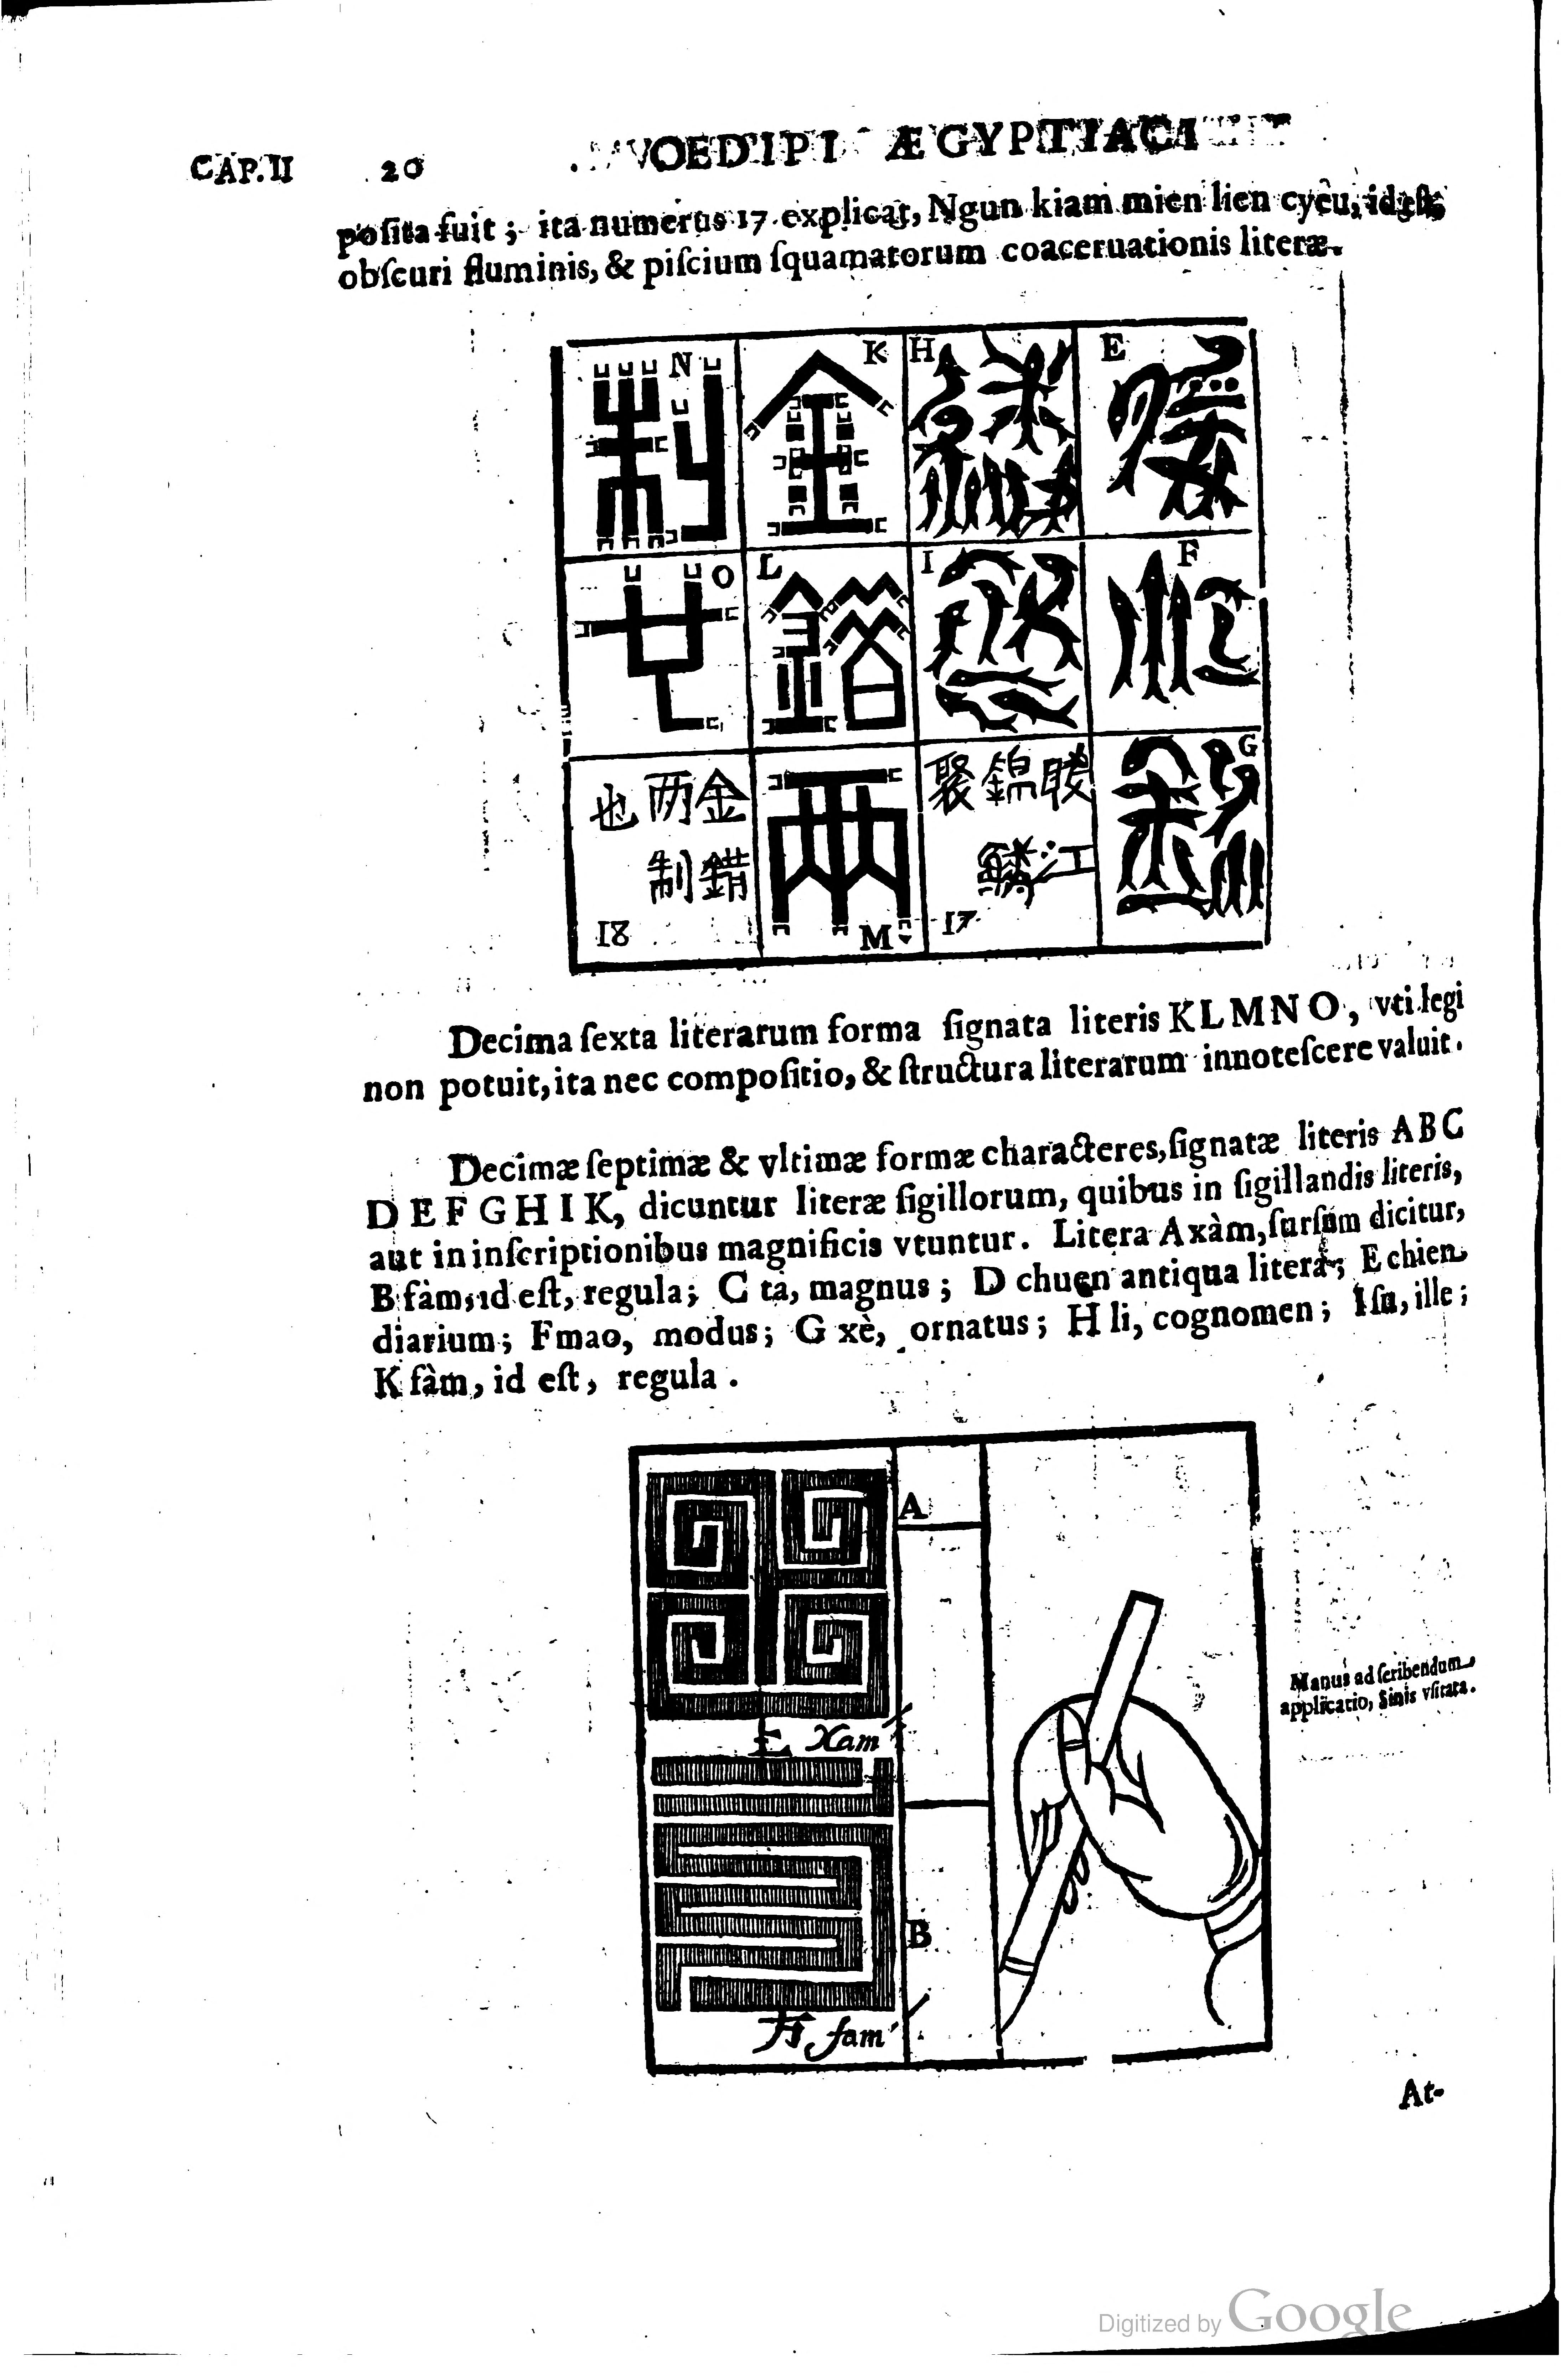 CAP. II 20 OEDIPI ÆGYPTIACI
poſita fuit; ita numerus 17 explicat, Ngun kiam mien lien cyeu, id eſt,
obſcuri fluminis, & piſcium ſquamatorum coaceruationis literæ.
N K H E
O L I F
G
也 两 金
制 錯
18
M
聚 錦
鱗 江
17
Decima ſexta literarum forma ſignata literis K L M N O, vti legi
non potuit, ita nec compoſitio, & ſtructura literarum innoteſcere valuit.
Decimæ ſeptimæ & vltimæ formæ characteres, ſignatæ literis A B C
D E F G H I K, dicuntur literæ ſigillorum, quibus in ſigillandis literis,
aut in inſcriptionibus magnificis vtuntur. Litera A xàm, ſurſum dicitur,
B fàm, id eſt, regula; C tà, magnus; D chuen antiqua litera; E chien
diarium; F mao, modus; G xè, ornatus; H li, cognomen; I ſu, ille;
K fàm, id eſt, regula.
A
Xam
B
方 fam
Manus ad ſcribendum
applicatio, Sinis vſitata.
At-
Digitized by Google